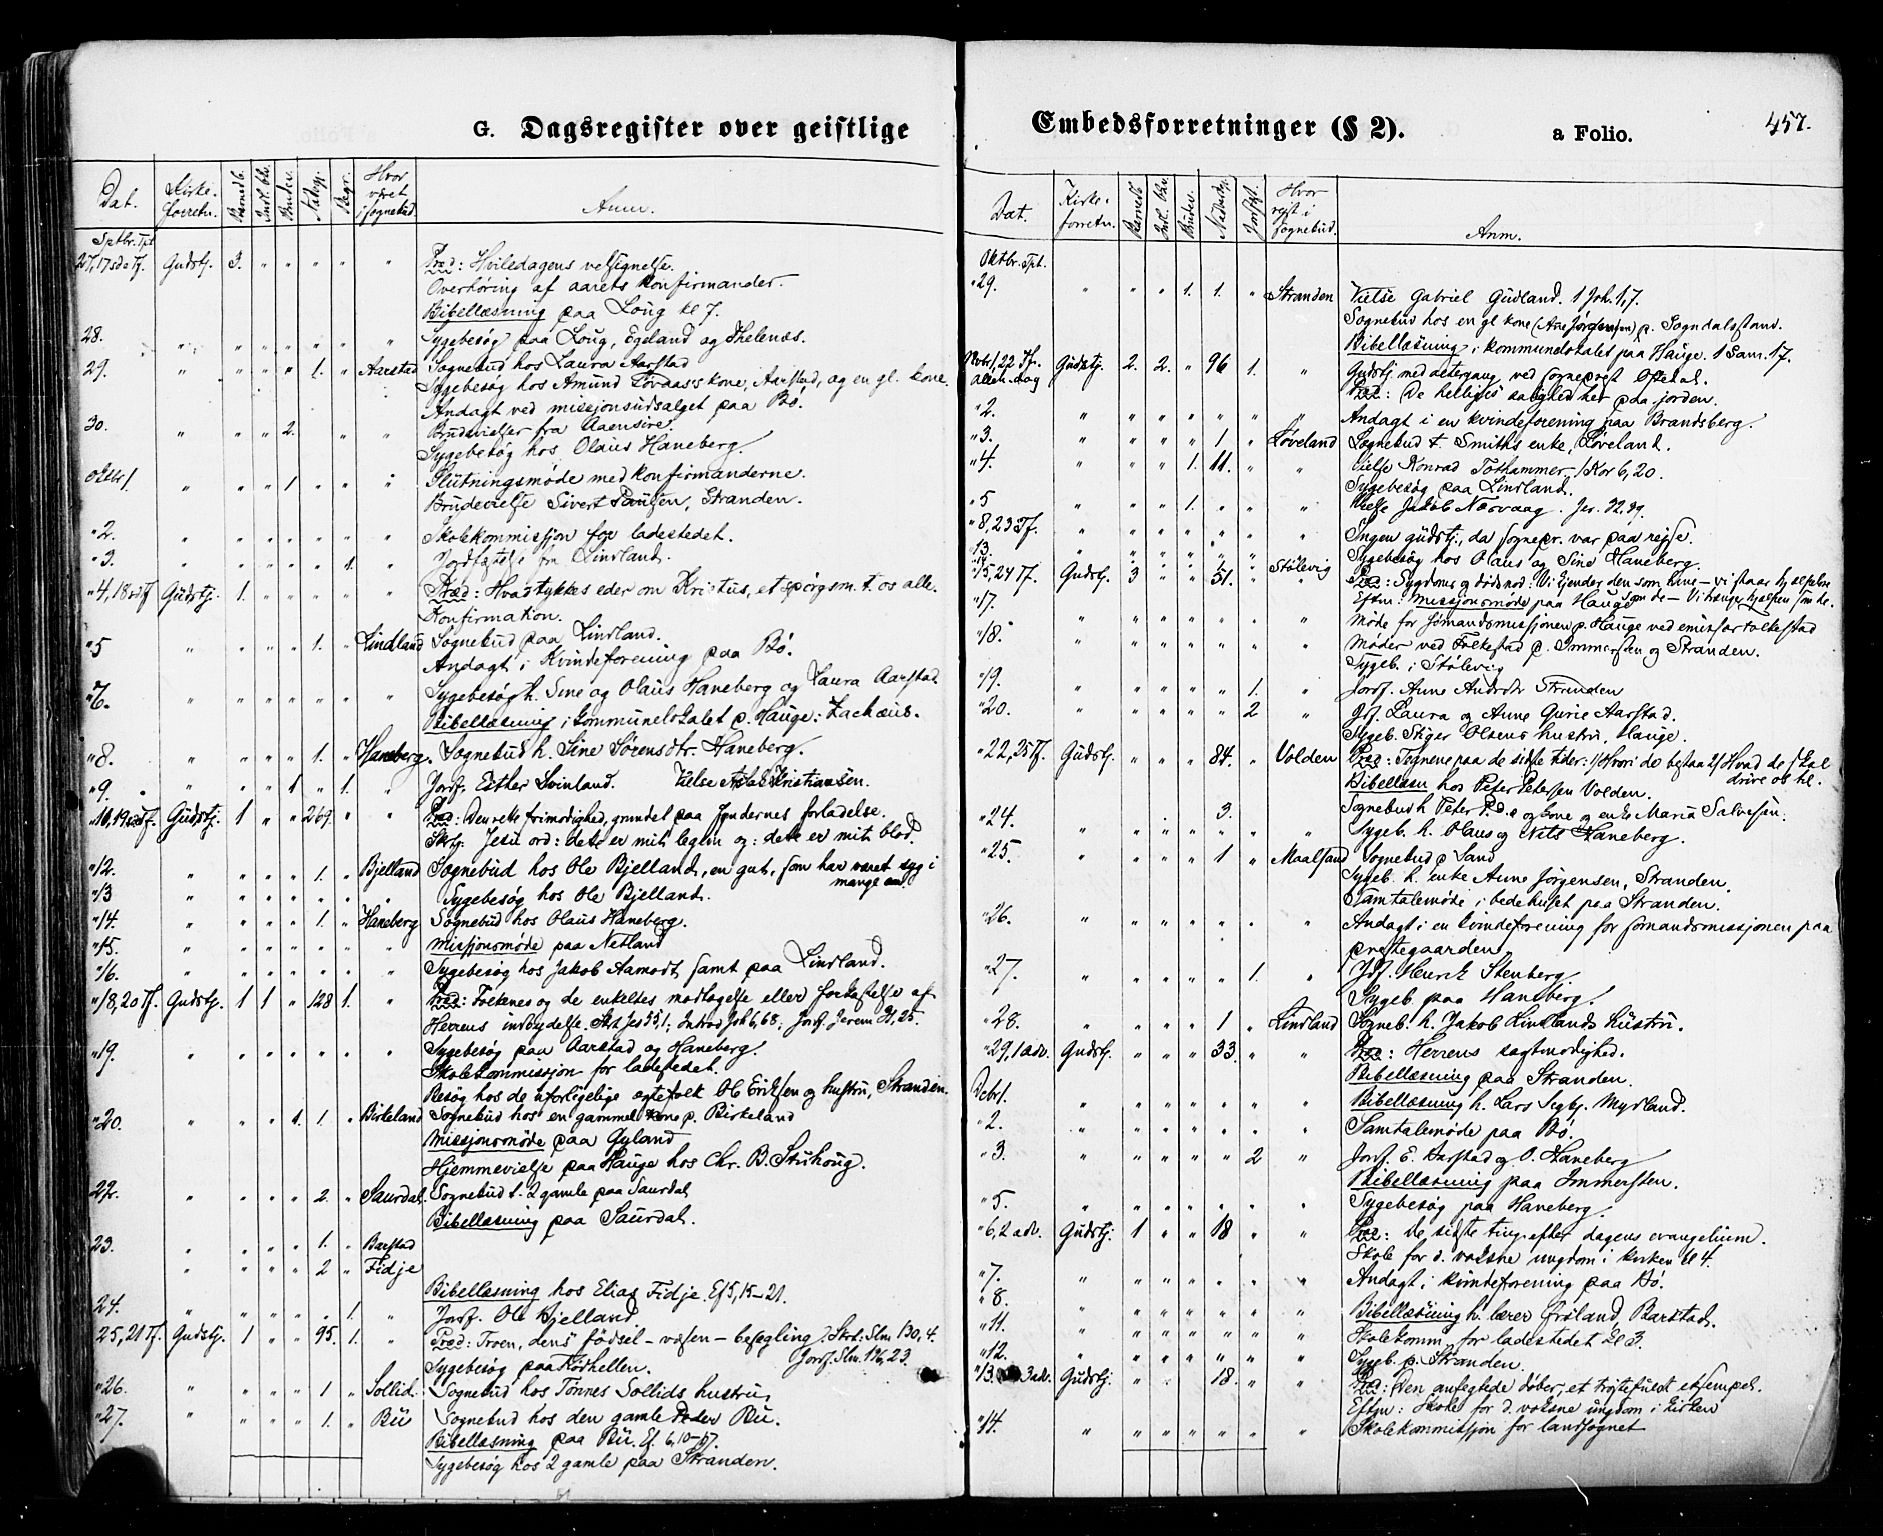 G. Dagsregister over geistlige
Dat.
Kirke-forretn.
Barnedb.
Indl. bk.
Brudev.
Nadvgj.
Begr.
Hvor været i sognebud
Anm.
Septbr. Tpt
27, 17 sde Tf. Gudstj. 3. " " " " " Præd: Hviledagens velsignelse.
Overhøring af aarets konfirmander.
Bibellæsning paa Loug kl 7.
28. " " " " " " " Sygebesøg paa Loug, Egeland og Thelenæs.
29. " " " " 1. " Aarstad Sognebud hos Laura Aarstad
Sygebesøg hos Amund Tordas's kone, Aarstad, og en gl. kone.
Andagt ved missjonsudsalget paa Bø.
30. " " " 2. " " Brudevielser fra Aaensire.
Sygebesøg hos Olaus Haneberg.
Oktbr 1. " " " 1 " " " Slutningsmøde med konfirmanderne.
Brudevielse Sivert Paulsen, Stranden.
" 2. " " " " " " " Skolekommissjon for ladestedet.
" 3. " " " " " 1. " Jordfæstelse fra Lindland.
" 4, 18 s Tf Gudstj. 1. " " " " " Præd: Hvad tykkes eder om Kristus, et spørgsm. t. os alle.
Konfirmation.
" 5 " " " " 1. " Lindland Sognebud paa Lindland.
Andagt i Kvindeforening paa Bø.
" 7. " " " " " " " Sygebesøg h. Sine og Olaus Haneberg og Laura Aarstad.
Bibellæsning i kommunelokalet p. Hauge: Zachæus.
" 8. " " " " 1. " Haneberg. Sognebud h. Sine Sørensdtr. Haneberg.
" 9. " " " 1 " 1. " Jordf. Esther Svinland. Vielse Kristiansen.
" 10, 19 s Tf. Gudstj. 1 " " 269. " " Præd: Den rette frimodighed, grundet paa syndernes forladelse.
Skrtj. Jesu ord: dette er mit legem og: dette er mit blod.
" 12. " " " " 1. " Bjelland Sognebud hos Ole Bjelland, en gut, som har været syg i
mange aar.
" 13 " " " " " " " Sygebesøg hos Ole Bjelland.
" 14. " " " " 1. " Haneberg Sognebud hos Olaus Haneberg.
" 15. " " " " " " " Missjonsmøde paa Netland
" 16. " " " " " " " Sygebesøg hos Jakob Aamodt samt paa Lindland.
" 18, 20 Tf. Gudstj. 1 1 " 128 1. " Præd: Folkenes og de enkeltes modtagelse eller forkastelse af
Herrens indbydelse. Skt Jes 55,1; Indvd Joh 6,68; Jordf. Jerem 31, 25.
" 19. " " " " " " " Sygebesøg paa Aarstad og Haneberg.
Skolekommissjon for ladestedet.
Besøg hos de uforligelige ægtefolk Ole Eriksen og hustru, Stranden.
" 20. " " " 1. 1. " Birkeland Sognebud hos en gammel kone p. Birkeland
Missjonsmøde paa Gyland
Hjemmevielse paa Hauge hos Chr. B. Stuhoug.
22. " " " " 2. " Saurdal. Sognebud t. 2 gamle paa Saurdal
Bibellæsning paa Saurdal.
23. " " " " 1. " Barstad
" " " " 2 " Fidje
Bibellæsning hos Elias Fidje. Ef 5, 15-21.
24. " " " " " 1. " Jordf. Ole Bjelland.
25, 21 Tf. Gudstj. 1 " " 95. 1. " Præd: Troen, dens fødsel - væsen - besegling. Skrt: Slm 130, 4.
Jordf. Slm. 126, 23.
Sygebesøg paa Rødhellen.
" 26. " " " " 1 " Sollid. Sognebud hos Tønnes Sollids hustru,
" 27. " " " " 1. " Bu Sognebud hos den gamle Peder Bu.
Bibellæsning paa Bu. Ef. 6, 10-17.
Sygebesøg hos 2 gamle paa Stranden.
Embedsforretninger (§ 2).
a Folio.
457.
Dat.
Kirke-forretn.
Barneb.
Indl. bk.
Brudev.
Nadverg.
Jordfst.
Hvor rejst i sognebud.
Anm.
Oktbr. Tpt.
" 29. " " " 1. 1. " Stranden Vielse Gabriel Gudland. 1 Joh. 1, 7.
Sognebud hos en gl kone (Ane Jørgensen) p. Sogndalsstand.
Bibellæsning i kommunelokalet paa Hauge. 1 Sam. 17.
Novbr 1, 22 Tf. allehdag Gudstj. 2. 2. " 96 1. " Gudstj med altergang ved sogneprest Oftedal.
Præd: De helliges salighed her paa jorden.
" 2. " " " " " " " Andagt i en kvindeforening paa Brandsberg.
" 3. " " " " 1 " Løveland Sognebud t. Smiths enke, Løveland.
" 4. " " " 1. 11. " " Vielse Konrad Tothammer. 1 Kor 6, 20.
Sygebesøg paa Lindland.
" 5 " " " 1. " " " Vielse Jakob Nærvaag. Jer. 32. 39.
" 8, 23 Tf. " " " " " " " Ingen gudstj., da sognepr. var paa rejse.
" 13. " " " " " " " Sygebesøg hos Olaus og Sine Haneberg.
" 15, 24 Tf. Gudstj. 3 " " 51. " Stølevig Præd: Sygdoms og dødsnød: Vi kjender den som hine - vi staar hjælpeløse
som de - Vi trænger hjælpen som de.
Eftm: Missjonsmøde paa Hauge
" 17. " " " " " " " Møde for sjømandsmissjonen p. Hauge ved emissær Folkestad
" 18. " " " " " " " Møder ved Folkestad p. Immerstein og Stranden.
Sygeb. i Stølevig
" 19. " " " " " 1. " Jordf. Anne Andrdtr Stranden
" 20. " " " " " 2 " Jrf. Laura og Anne Gurie Aarstad.
Sygeb. Stiger Olsens hustru, Hauge.
" 22, 25 Tf. Gudstj. " " " 84. " Volden Præd: Tegnene paa de sidste tider: 1/ Hvori de bestaa 2/ Hvad de skal
drive os til.
Bibellæsn hos Peter Petersen Volden.
Sognebud h Peter P.d.e og kone og enke Maria Salvesen.
" 24. " " " " 3. " " Sygeb. h. Olaus og Nils Haneberg.
" 25. " " " " 1 " Maalsand Sognebud p Sand
Sygeb. h. enke Anne Jørgensen, Stranden.
Samtalemøde i bedehuset paa Stranden.
" 26. " " " " " " " Andagt i en kvindeforening for sømandsmissjonen paa
præstegaarden.
" 27. " " " " " 1. " Jdf. Henrik Stenberg.
Sygeb. paa Haneberg.
" 28. " " " " 1 " Lindland Sogneb. h. Jakob Lindlands hustru.
" 29, 1 adv. Gudstj. " " " 33. " " Præd: Herrens sagtmodighed.
Bibellæsning paa Stranden.
Dcbr 1. " " " " " " " Bibellæsning h. Lars Segbj. Mydland.
" 2. " " " " " " " Samtalemøde paa Bø.
" 3. " " " " " 2 " Jordf. E. Aarstad og O. Haneberg
Bibellæsning paa Immerstein.
" 5. " " " " " " " Sygebesøg paa Haneberg.
" 6, 2 adv. Gudstj. 1 " " 18 " " Præd: De sidste ting efter dagens evangelium.
Skole for d. voksne ungdom i kirken kl 4.
" 7. " " " " " " " Andagt i kvindeforening paa Bø.
" 8. " " " " " " " Bibellæsning h. lærer Frøland, Barstad.
" 11. " " " " " " " Skolekomm. for ladestedet kl 3.
" 12. " " " " " " " Sygeb. p. Stranden.
" 13. 3 adv. Gudstj. " " " 18. " " Præd: Den anfegtede døber, et trøstefuldt eksempel.
Eftm: Skole for d. voksne ungdom i kirken
" 14. " " " " " " " Skolekommissjon for landsognet